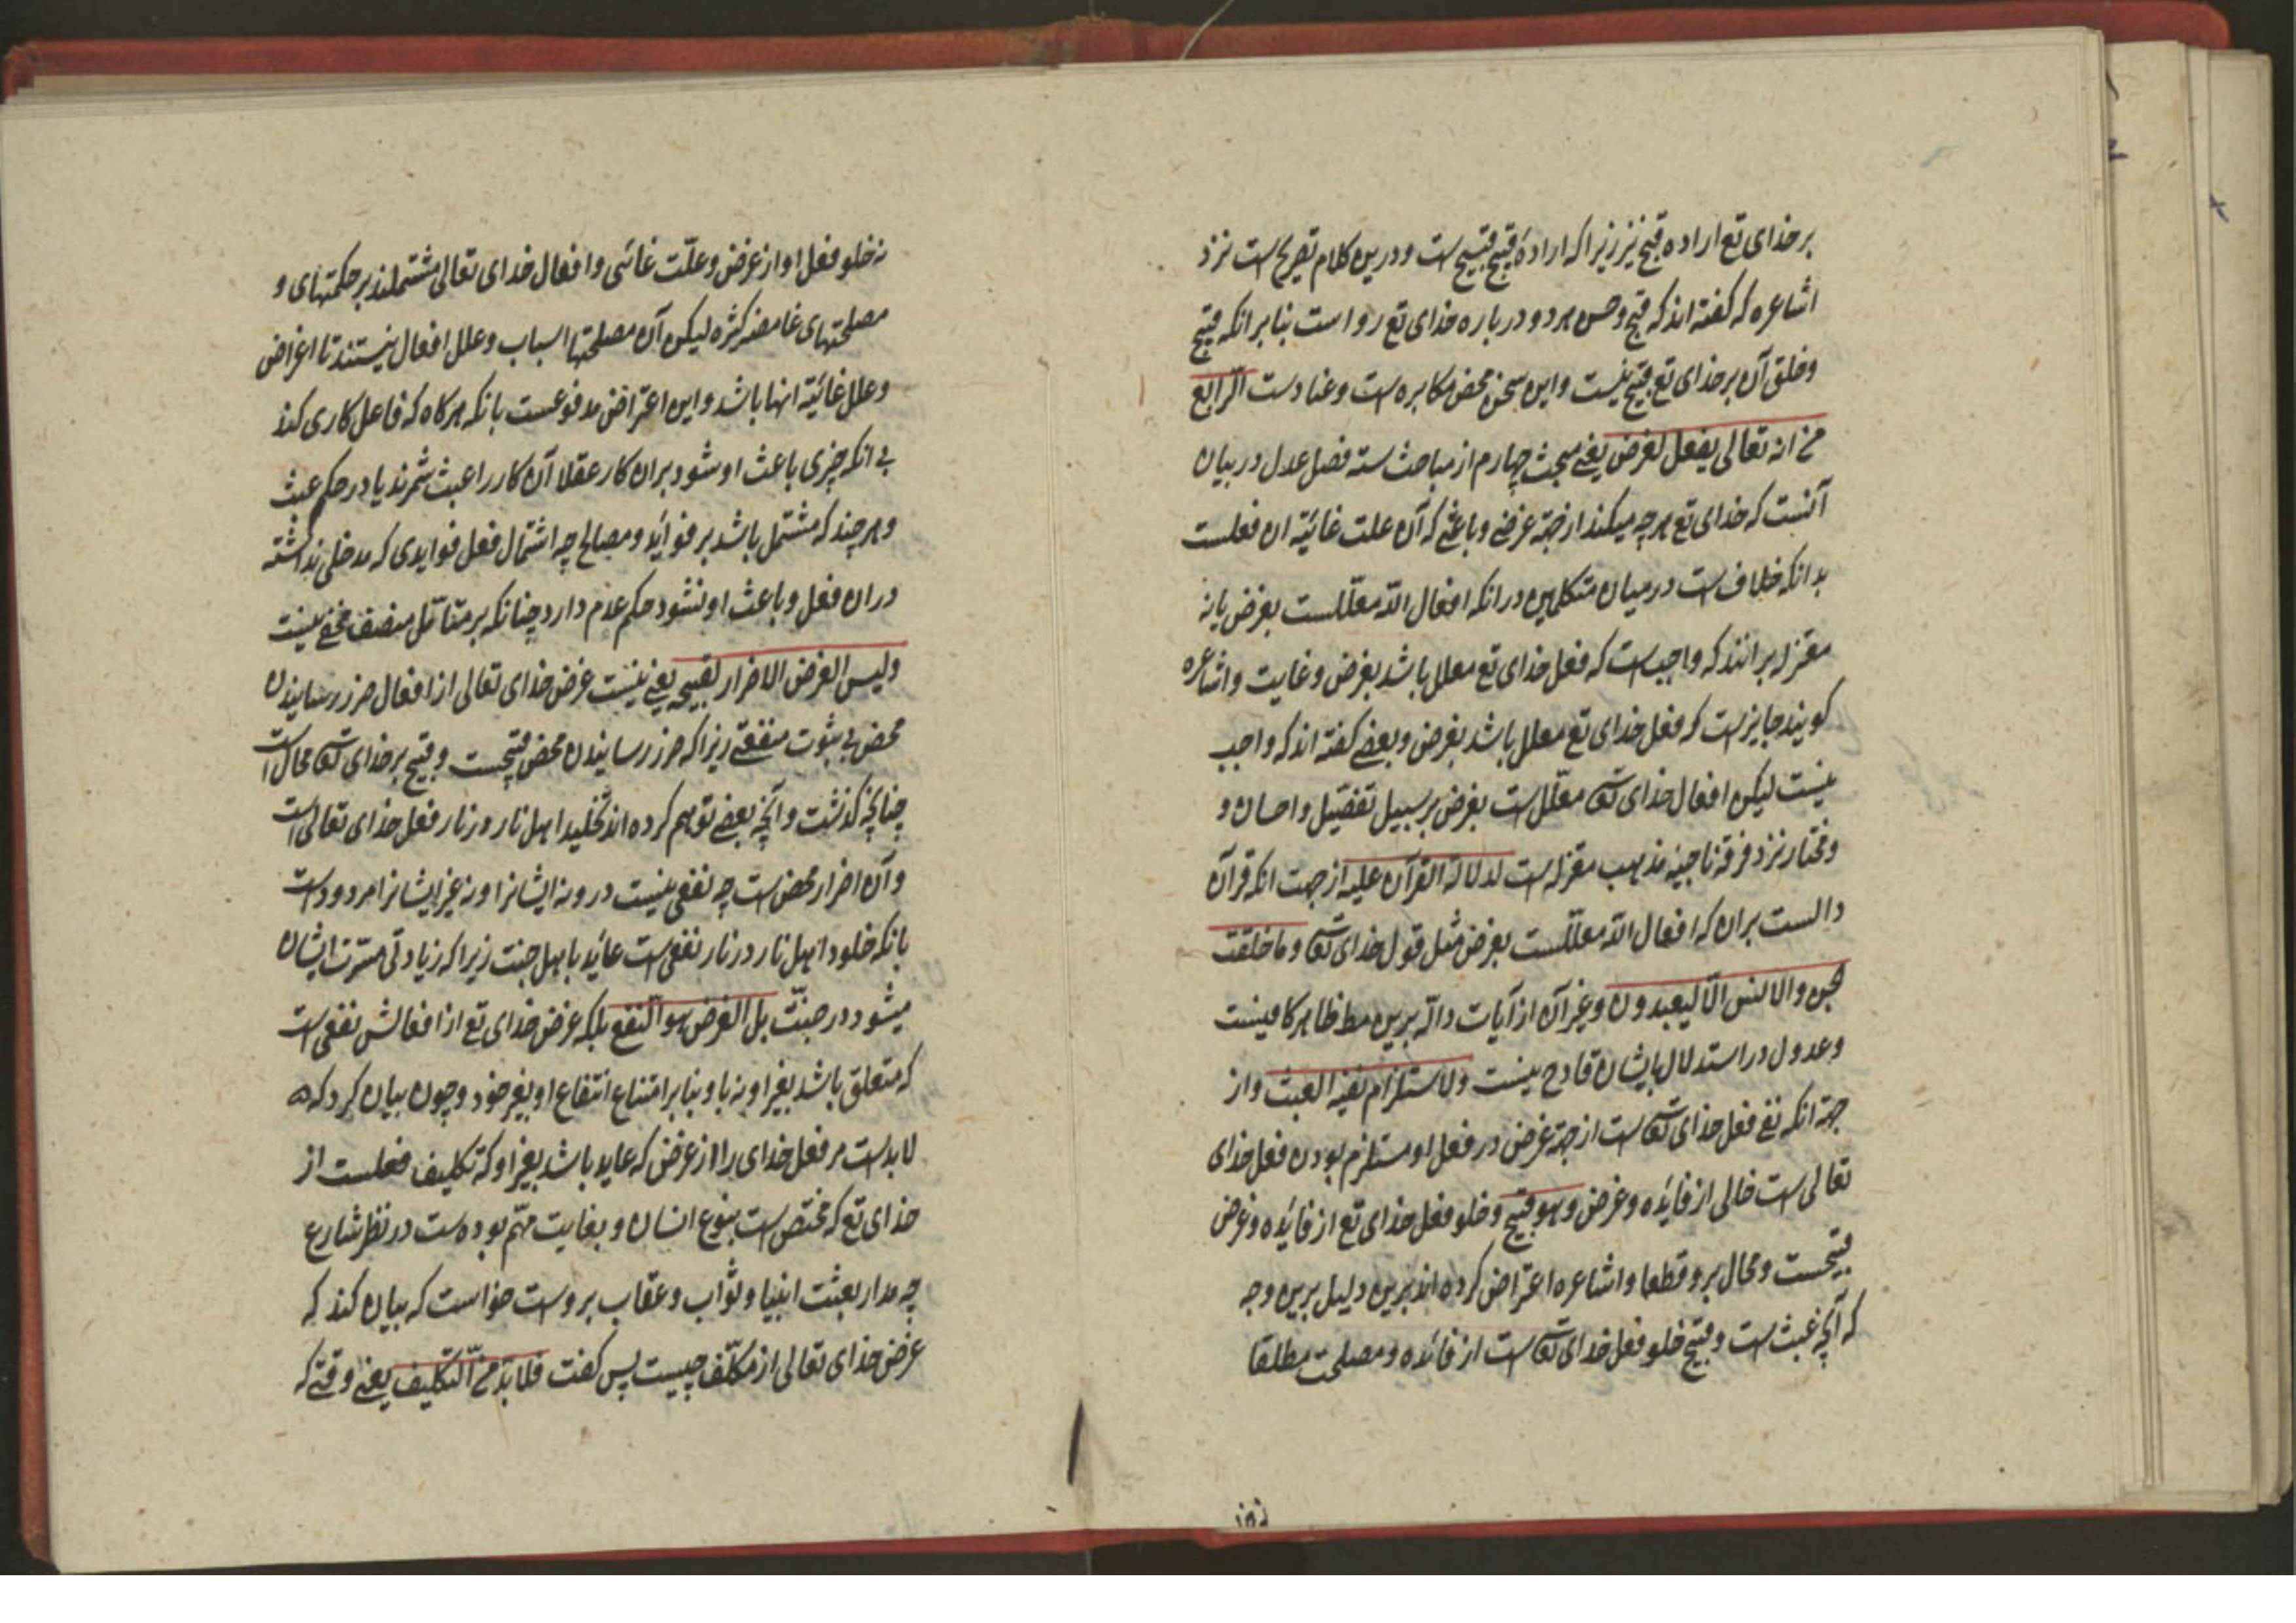 بر خدای تع اراده قبیح نیز زیرا که ارادهٔ قبیح قبیح است و درین کلام تصریح است نزد
اشاعره که گفته اند که قبح و حسن هر دو در باره خدای تع روا است بنا بر انکه قبیح
و خلق آن بر خدای تع قبیح نیست و این سخن محض مکابره است و عنادست الرّابع
فی انه تعالی یفعل لغرض یعنی مبحث چهارم از مباحث سته فصل عدل در بیان
آنست که خدای تع هر چه میکند از جهة غرضی و باعثی که آن علت غائیّة ان فعلست
بدانکه خلاف است در میان متکلمین در انکه افعال اللّه معلّلست بغرض یا نه
معتزله برانند که واجبست که فعل خدای تع معلل باشد بغرض و غایت و اشاعره
گویند جایزست که فعل خدای تع معلل باشد بغرض و بعضی گفته اند که واجب
نیست لیکن افعال خدای تعه معلّل است بغرض بر سبیل تفضیل و احسان و
و مختار نزد فرقه ناجیه مذهب معتزله است لدلالة القرآن علیه از جهت انکه قرآن
دالست بران که افعال اللّه معلّلست بغرض مثل قول خدای تعه و ما خلقت
الجن و الانس الّا لیعبدون و غیر آن از آیات دالّه برین مط ظاهر کافیست
و عدول در استدلال بایشان قادح نیست ولاستلزام نفیه العبث و از
جهة انکه نفی فعل خدای تعه است از جهة غرض در فعل او مستلزم بودن فعل خدای
تعالی است خالی از فایده و غرض و هو قبیح و خلو فعل خدای تع از فایده و غرض
قبیحست و محال برو قطعا و اشاعره اعتراض کرده اند برین دلیل برین وجه
که آنچه عبث است و قبیح خلو فعل خدای تعه است از فائده و مصلحت مطلقا
نه خلو فعل او از غرض و علّت غائی و افعال خدای تعالی مشتملند بر حکمتهای و
مصلحتهای غامضه کثره لیکن آن مصلحتها اسباب و علل افعال نیستند تا اغراض
و علل غائیّة انها باشد و این اعتراض مدفوعست بانکه هر کاه که فاعل کاری کند
بی انکه چیزی باعث او شود بران کار عقلا آن کار را عبث شمرند یا در حکم عبث
و هر چند که مشتمل باشد بر فوائد و مصالح چه اشتمال فعل فوایدی که مدخلی نداشته
دران فعل و باعث او نشود حکم عدم دارد چنانکه بر متأمّل منصف مخفی نیست
ولیس الغرض الاضرار لقبحه یعنی نیست غرض خدای تعالی از افعال ضرر رسانیدن
محض بی ثبوت منفعتی زیرا که ضرر رسانیدن محض قبیحست و قبیح بر خدای تعه محال است
چنانچه کذشت و آنچه بعضی توهم کرده اند تخلید اهل نار در نار فعل خدای تعالی است
و آن اضرار محض است چه نفعی نیست درو نه ایشانرا و نه غیر ایشانرا مردود است
بانکه خلود اهل نار در نار نفعیست عائد باهل جنت زیرا که زیادتی مسرّت ایشان
میشود در جنّت بل الغرض هو النّفع بلکه غرض خدای تع از افعالش نفعی است
که متعلق باشد بغیر او نه باو بنا بر امتناع انتفاع او بغیر خود و چون بیان کرد که
لابدست مر فعل خدای را از غرض که عاید باشد بغیر او که تکلیف فعلست از
خدای تع که مختص است بنوع انسان و بغایت مهّم بوده ست در نظر شارع
چه مدار بعثت انبیا و ثواب و عقاب بروست خواست که بیان کند که
غرض خدای تعالی از مکلّف چیست پس کفت فلا بدّ من التّکلیف یعنی وقتی که